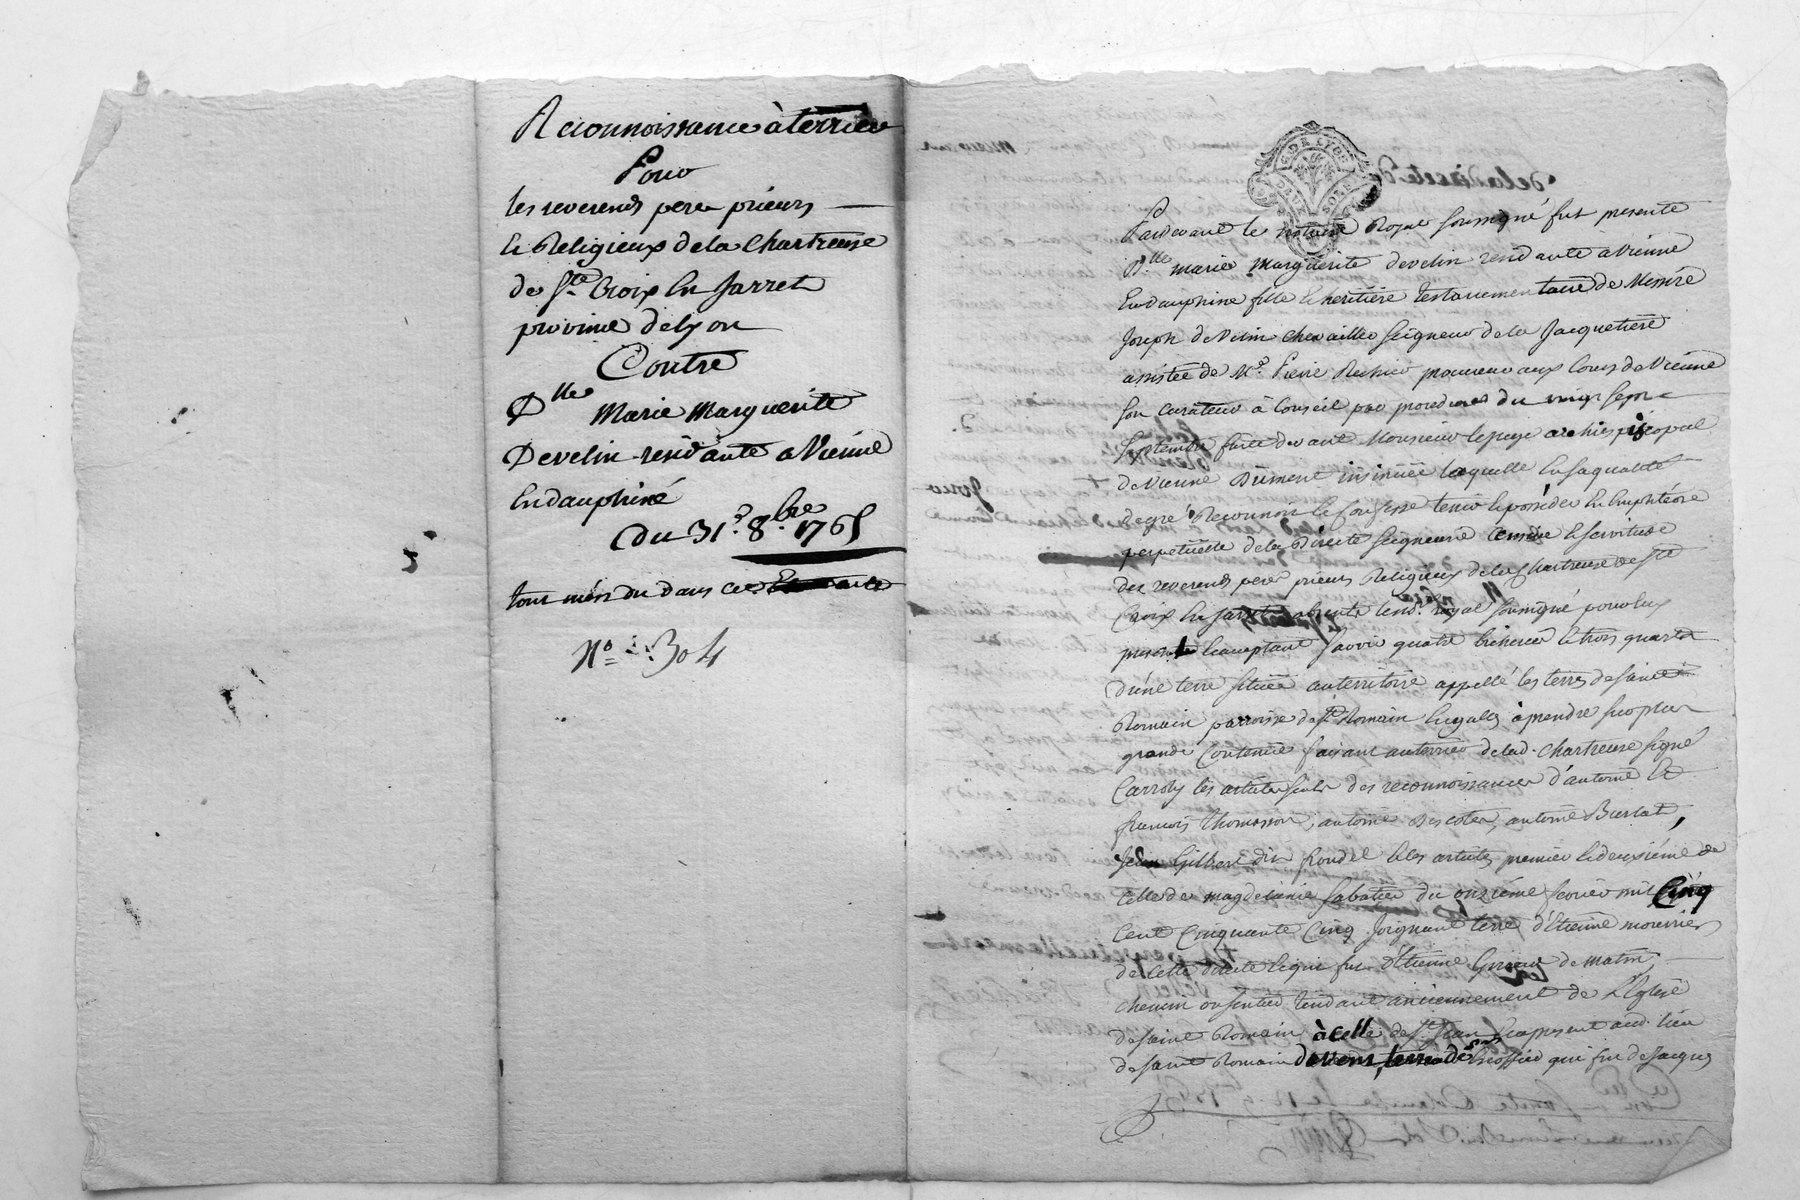 Reconnoissance à terrier
Pour
les reverends pere prieurs
& Religieux de la Chartreuse
de Ste. Croix en Jarret
province de lyon
Contre
Dlle Marie Marguerite
Develin residante a Vienne
en dauphiné
Du 31e. 8bre. 1765
tout mis du dans ces
No 304
G. DE LYON
UN SOL
Pardevant le notaire Royal soussigné fut presente
Dlle marie marguerite develin residante a Vienne
en dauphine fille & heritiere testamentaire de Messire
Joseph de Velin chevallier seigneur de la Jacquetiere
assistée de Me. Pierre procureur aux Cours de Vienne
son curateur à Conseil par procedures du vingt sept
Septembre faite devant Monsieur le juge archiepiscopal
de Vienne Düement insinuée laquelle en sa qualité
de gré Reconnoit & Confesse tenir & posséder en Emphitéose
perpetuelle de la Directe seigneurie Censive & servitude
des reverends peres prieurs Religieux de la Chartreuse de Ste
Croix en Jarret absents le nore. royal soussigné pour eux
present & acceptant savoir quatre bicherées & trois quarts
d'une terre située au territoire appellé les terres de Saint
Romain parroisse de St Romain en gales à prendre sur plus
grande Contenue faisant au terrier de lad. Chartreuse signé
Carroty les articles des reconnoissances d'antoine &
francois thomasson, antoine Descotes, antoine Burlat,
Jean Gilbert dit Rondel & les articles premier & deuxième de
celle de magdeleine Sabatier du onzième fevrier mil Cinq
Cent Cinquante Cinq Joignant terre d'Etienne mourier
de cette directe & qui fut d'Etienne de matin,
chemin ou sentier tendant anciennement de L'Eglise
de saint Romain à celle de St Jean & a present aud. lieu
de saint Romain de vent, terre de qui fut de Jacques